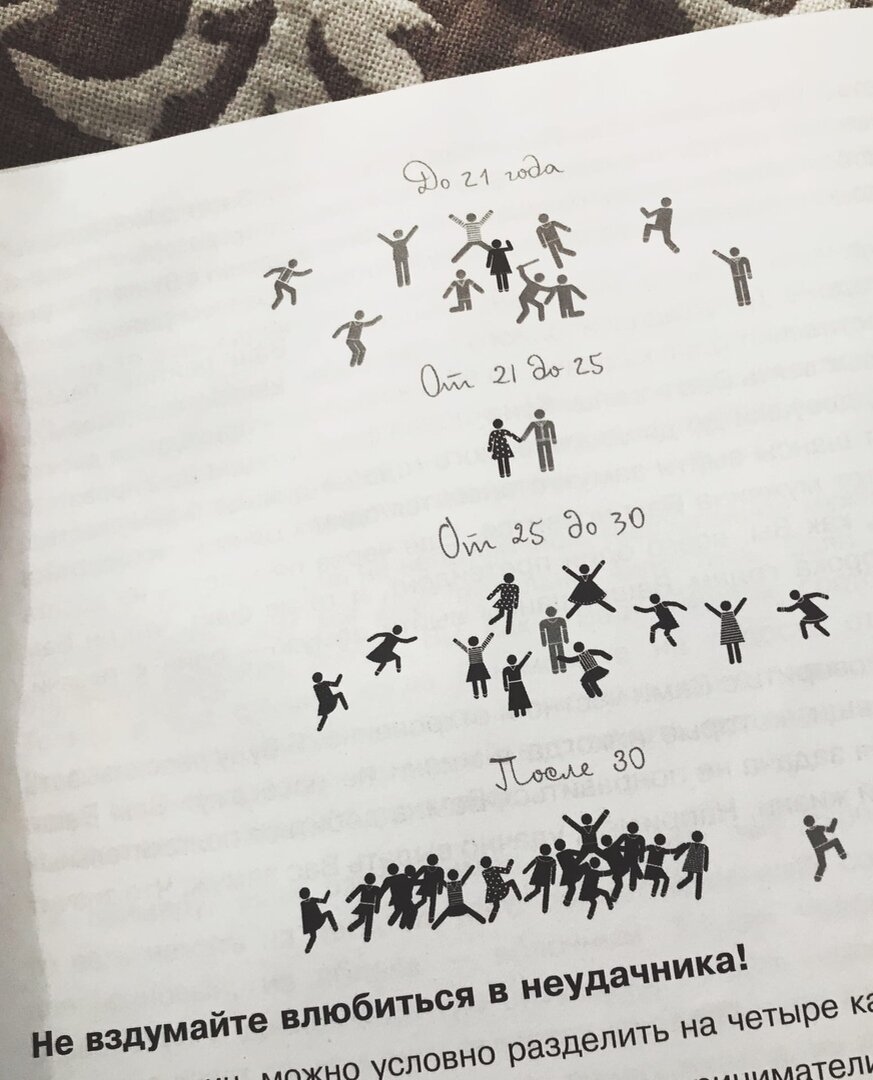 До 21 года
От 21 до 25
От 25 до 30
После 30
Не вздумайте влюбиться в неудачника!
можно условно разделить на четыре